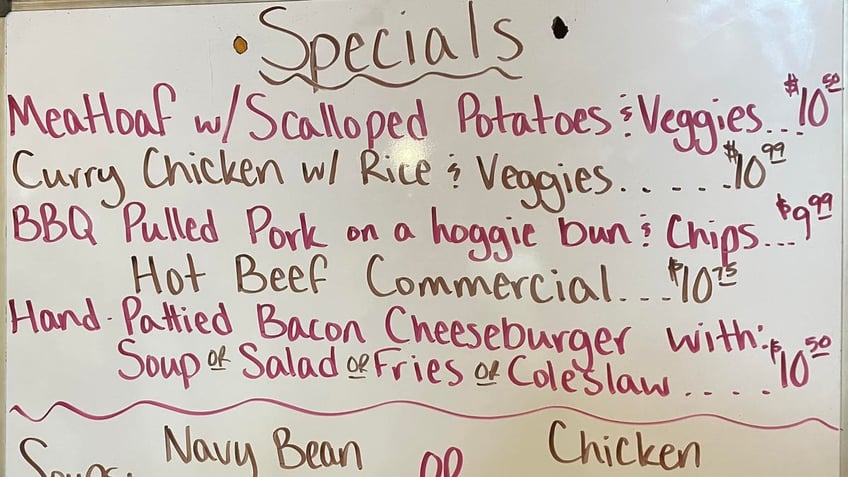 Specials
Meatloaf w/ Scalloped Potatoes & Veggies...$10.50
Curry Chicken w/ Rice & Veggies......$10.99
BBQ Pulled Pork on a hoggie bun & Chips...$9.99
Hot Beef Commercial...$10.75
Hand-Pattied Bacon Cheeseburger with:
Soup or Salad or Fries or Coleslaw....$10.50
Soups: Navy Bean OR Chicken